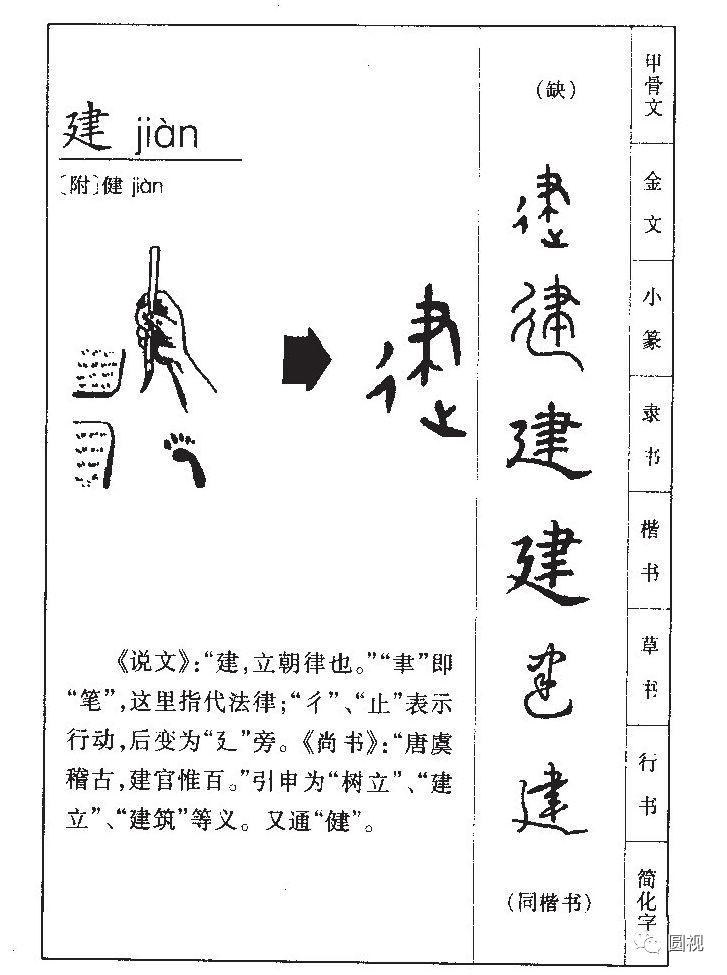 建 jiàn
〔附〕健 jiàn
《说文》:“建,立朝律也。”“聿”即
“笔”,这里指代法律;“彳”、“止”表示
行动,后变为“廴”旁。《尚书》:“唐虞
稽古,建官惟百。”引申为“树立”、“建
立”、“建筑”等义。又通“健”。
(缺)
甲骨文
建
金文
建
小篆
建
隶书
建
楷书
建
草书
建
行书
(同楷书)
简化字
圆视